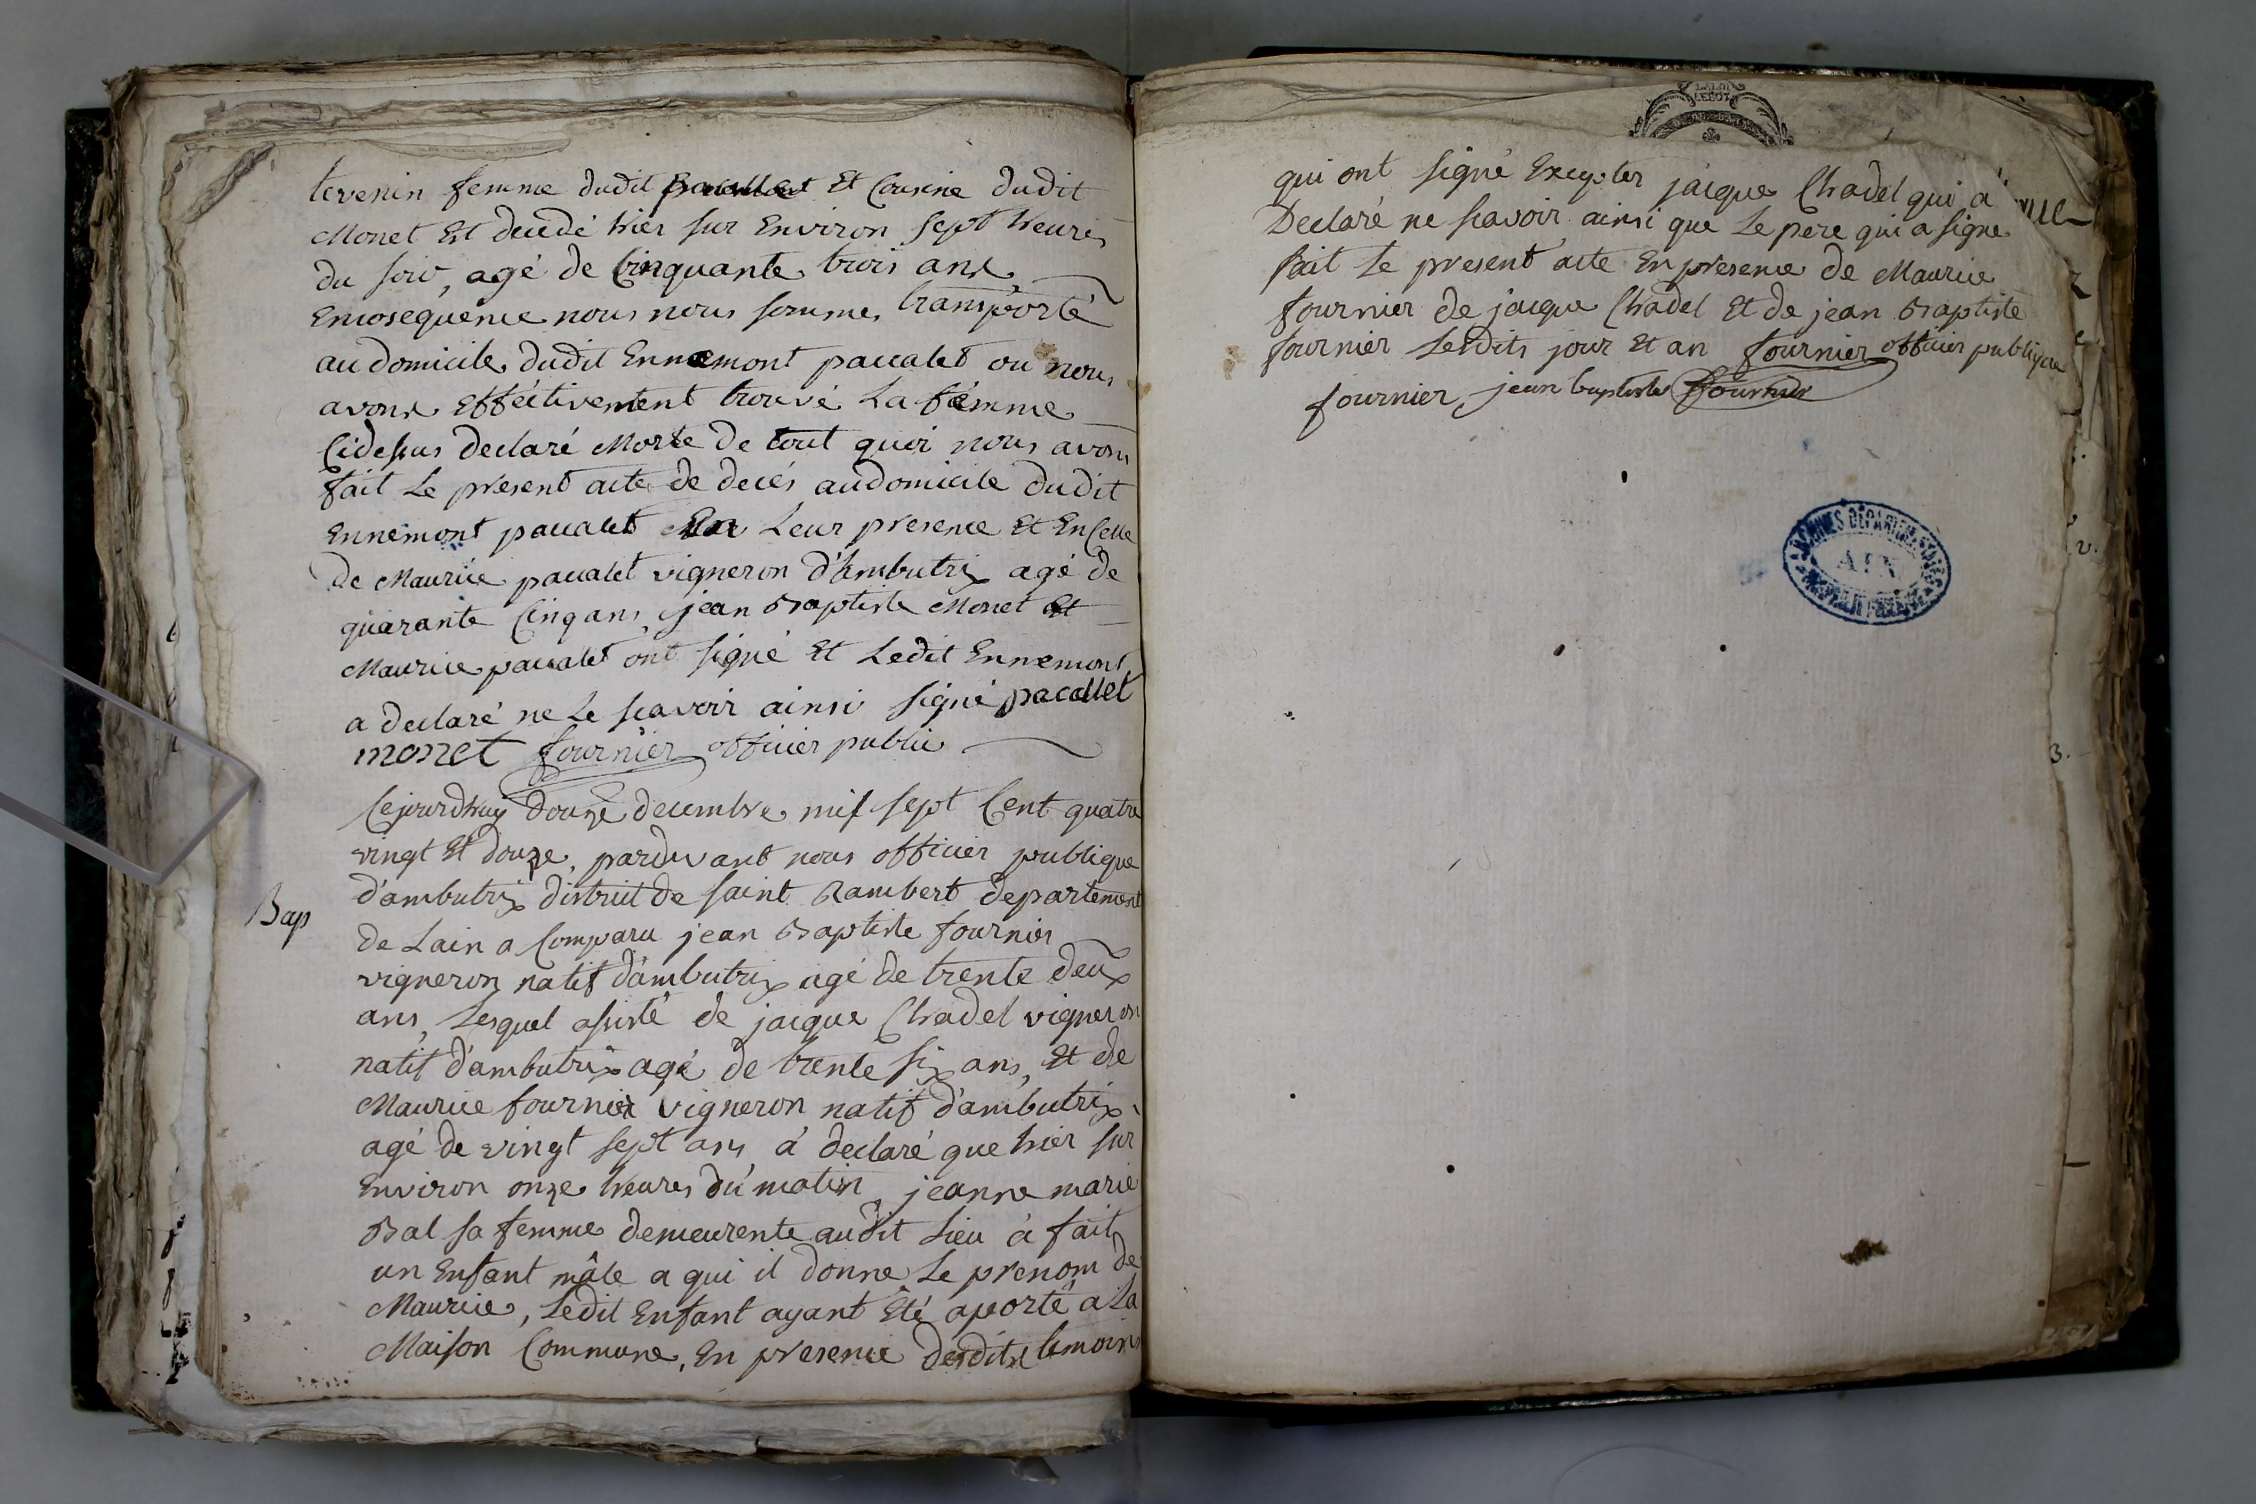 tevenin femme dudit pacallet et Cousine dudit
Monet Est decedé hier sur Environ sept heures
du soir, agé de Cinquante trois ans
Encosequence nous nous somme, transporté
au domicile dudit Ennemont pacalet ou nous
avons Efféctivement trouvé La fémme
Cidessus declaré Morte de tout quoi nous avons
fait Le present acte de decés audomicile dudit
Ennemont pacalet En Leur presence Et EnCelle
de Maurice pacalet vigneron d'ambutrix agé de
quarante Cinq ans, jean Baptiste Monet Et
Maurice pacalet ont signé Et Ledit Ennemont
a declaré ne Le scavoir ainsi signé pacallet
monet fournier officier public
Cejourdhuy douze decembre mil sept Cent quatre
vingt Et douze, pardevant nous officier publique
Bap
d'ambutrix district de saint Rambert departement
de Lain a Comparu jean Baptiste fournier
vigneron natif d'ambutrix agé de trente deux
ans, Lesquel assisté de jacque Chadel vigneron
natif d'ambutrix agé de trente six ans, Et de
Maurice fournier vigneron natif d'ambutrix
agé de vingt sept ans á declaré que hier sur
Environ onze heures du matin, jeanne marie
Bal sa femme demeurente audit Lieu á fait
un Enfant mâle a qui il donne Le prenom de
Maurice, Ledit Enfant ayant Été aporté a La
Maison Commune, En presence desdits temoins
qui ont signé Excepter jacque Chadel qui a
Declaré ne scavoir ainsi que Le pere qui a signe
fait Le present acte En presence de Maurice
fournier de jacque Chadel Et de jean Baptiste
fournier Lesdits jour Et an fournier officier publique
fournier jean baptiste fournier
AIN